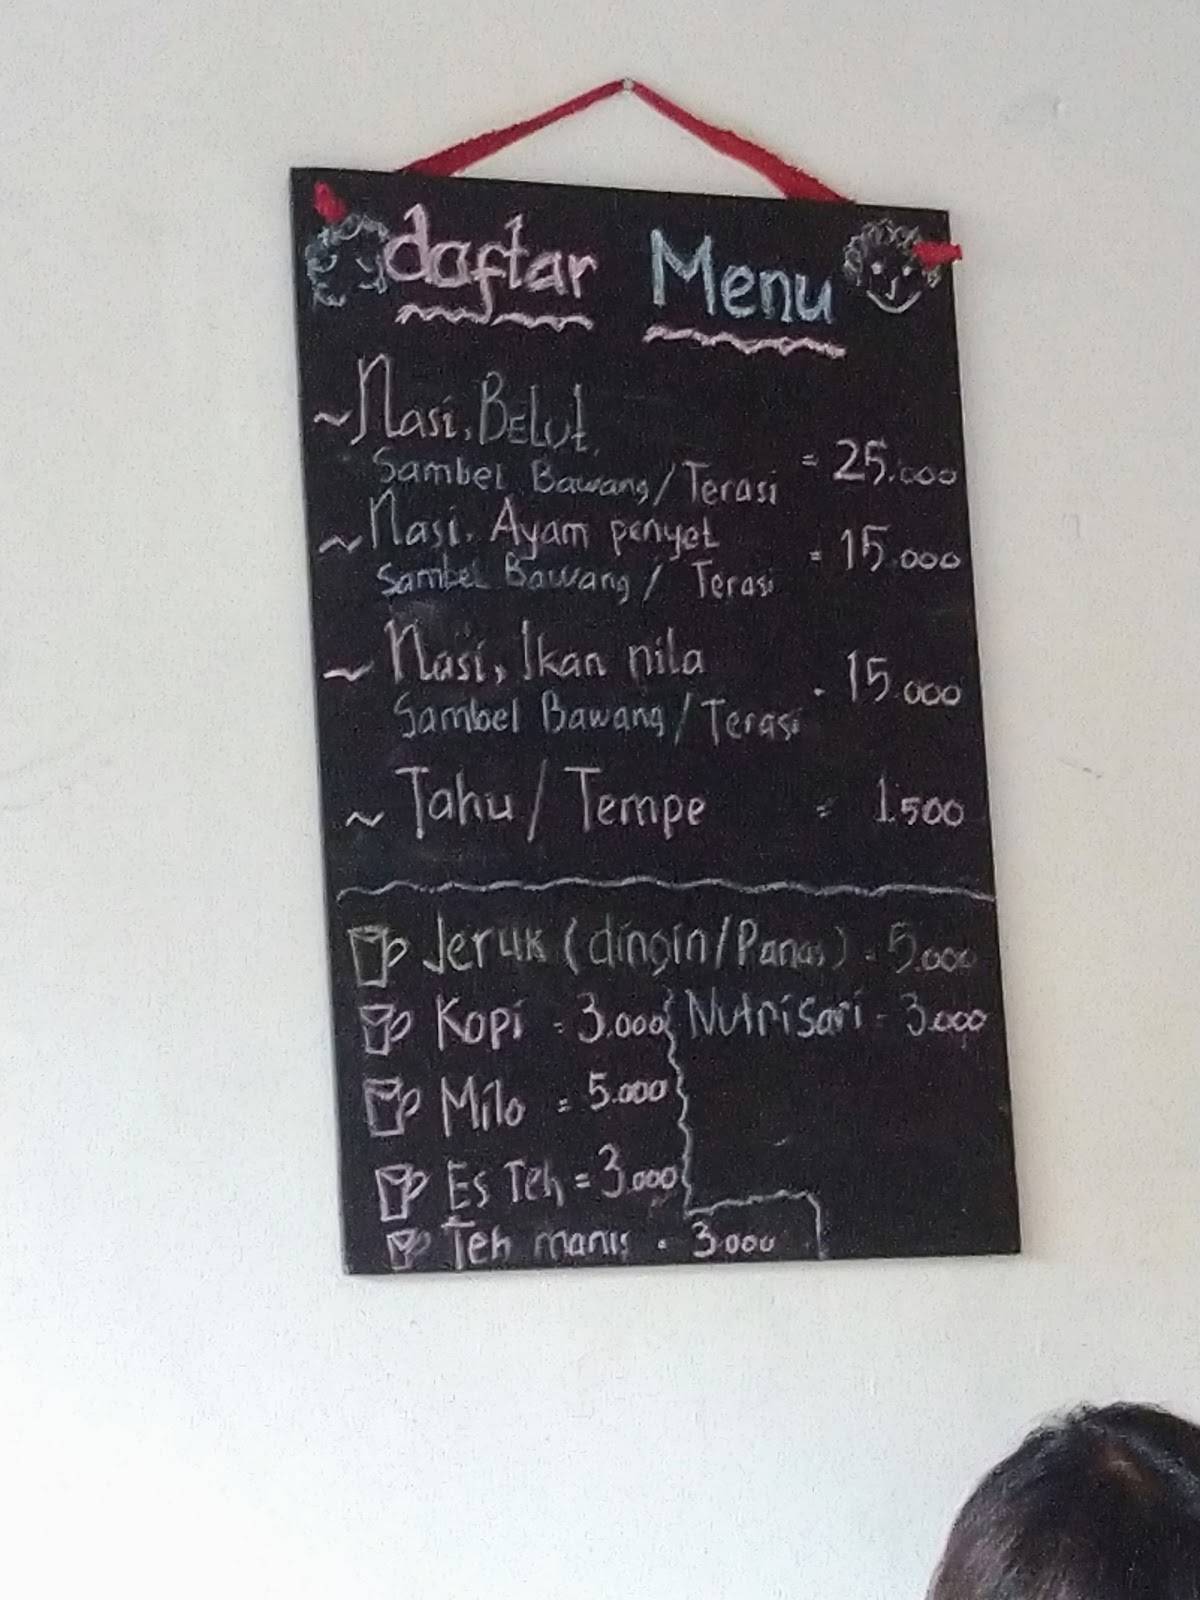 daftar Menu
~ Nasi, Belut,
Sambel Bawang / Terasi = 25.000
~ Nasi, Ayam penyet
Sambel Bawang / Terasi = 15.000
~ Nasi, Ikan nila
Sambel Bawang / Terasi . 15.000
~ Tahu / Tempe = 1.500
Jeruk (dingin/Panas) = 5.000
Kopi = 3.000 Nutrisari = 3.000
Milo = 5.000
Es Teh = 3.000
Teh manis . 3.000